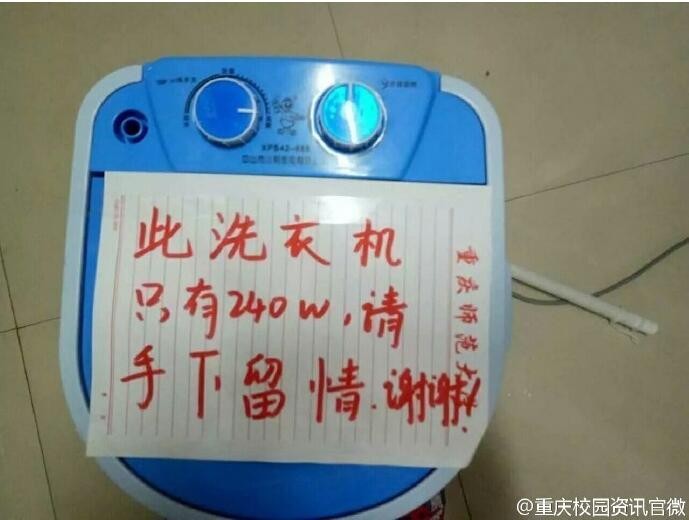 XPB42-888
此洗衣机
只有240W,请
手下留情.谢谢!
重庆师范大
@重庆校园资讯官微